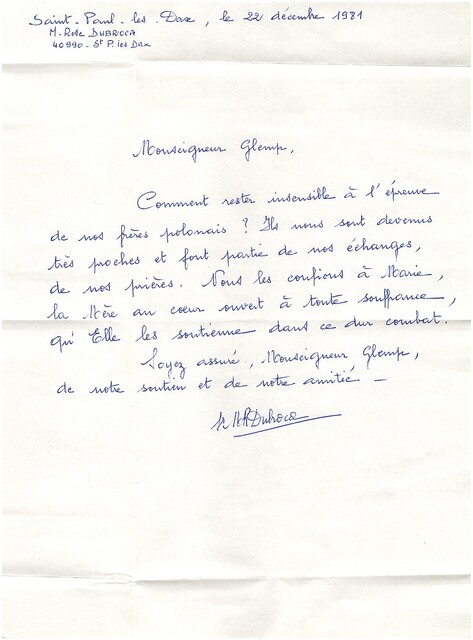 Saint-Paul-les-Dax, le 22 décembre 1981
M. Rose DUBROCA
40990 - St P. les Dax
Monseigneur Glemp,
Comment rester insensible à l'épreuve
de nos frères polonais ? Ils nous sont devenus
très proches et font partie de nos échanges,
de nos prières. Nous les confions à Marie,
la Mère au coeur ouvert à toute souffrance,
qu'Elle les soutienne dans ce dur combat.
Soyez assuré, Monseigneur Glemp,
de notre soutien et de notre amitié -
Dubroca